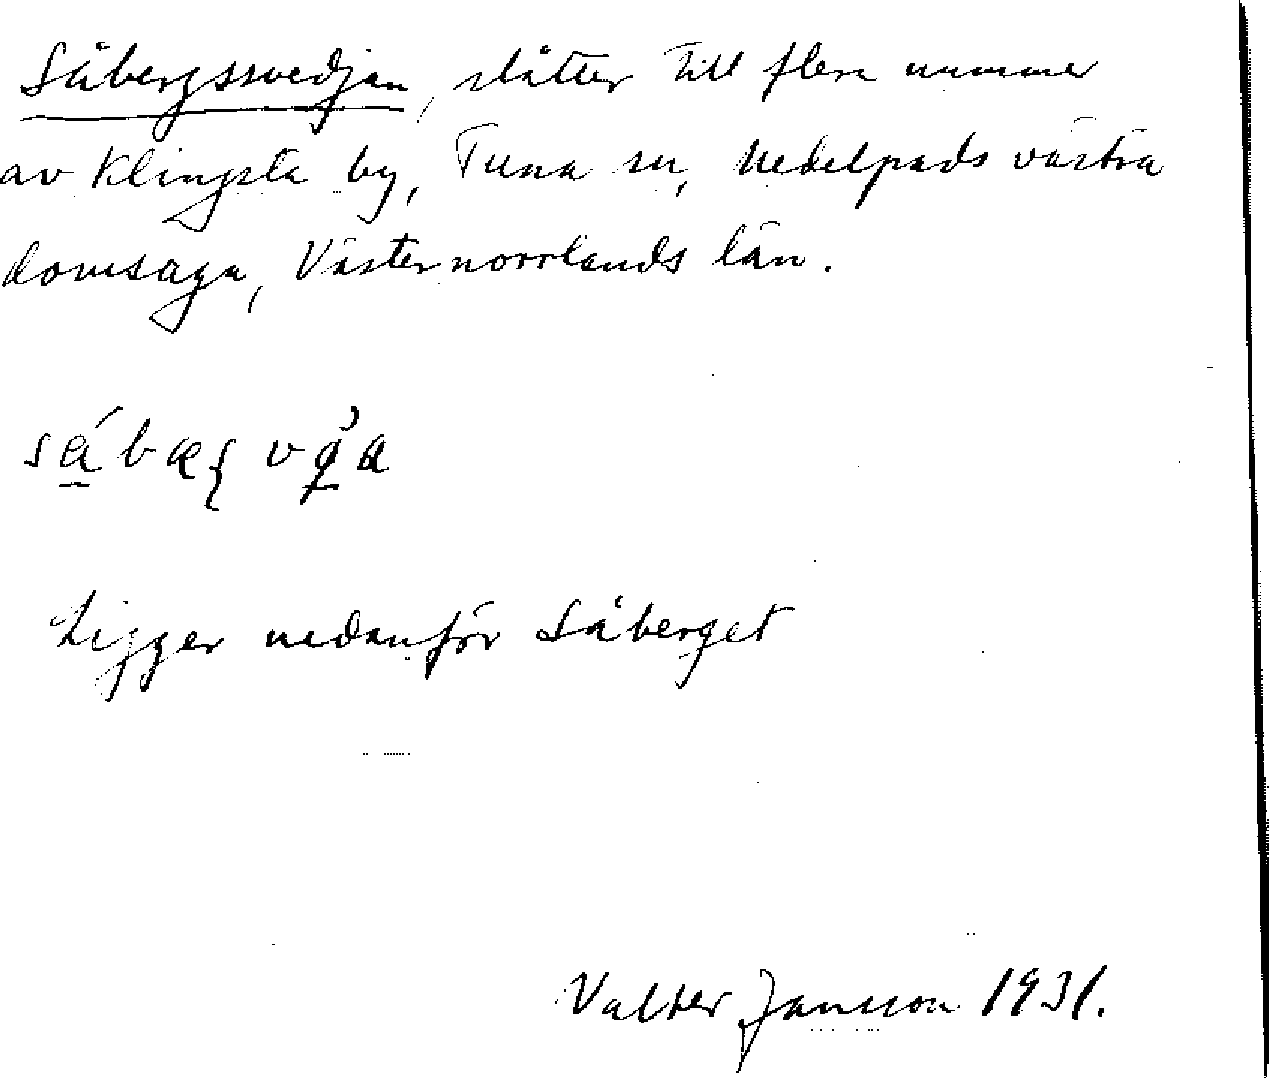 Såbergssvedjan, slåtter till flera nummer
av Klingsta by, Tuna sn, Medelpads västra
domsaga, Västernorrlands län.
Ligger nedanför Såberget
Valter Jansson 1931.